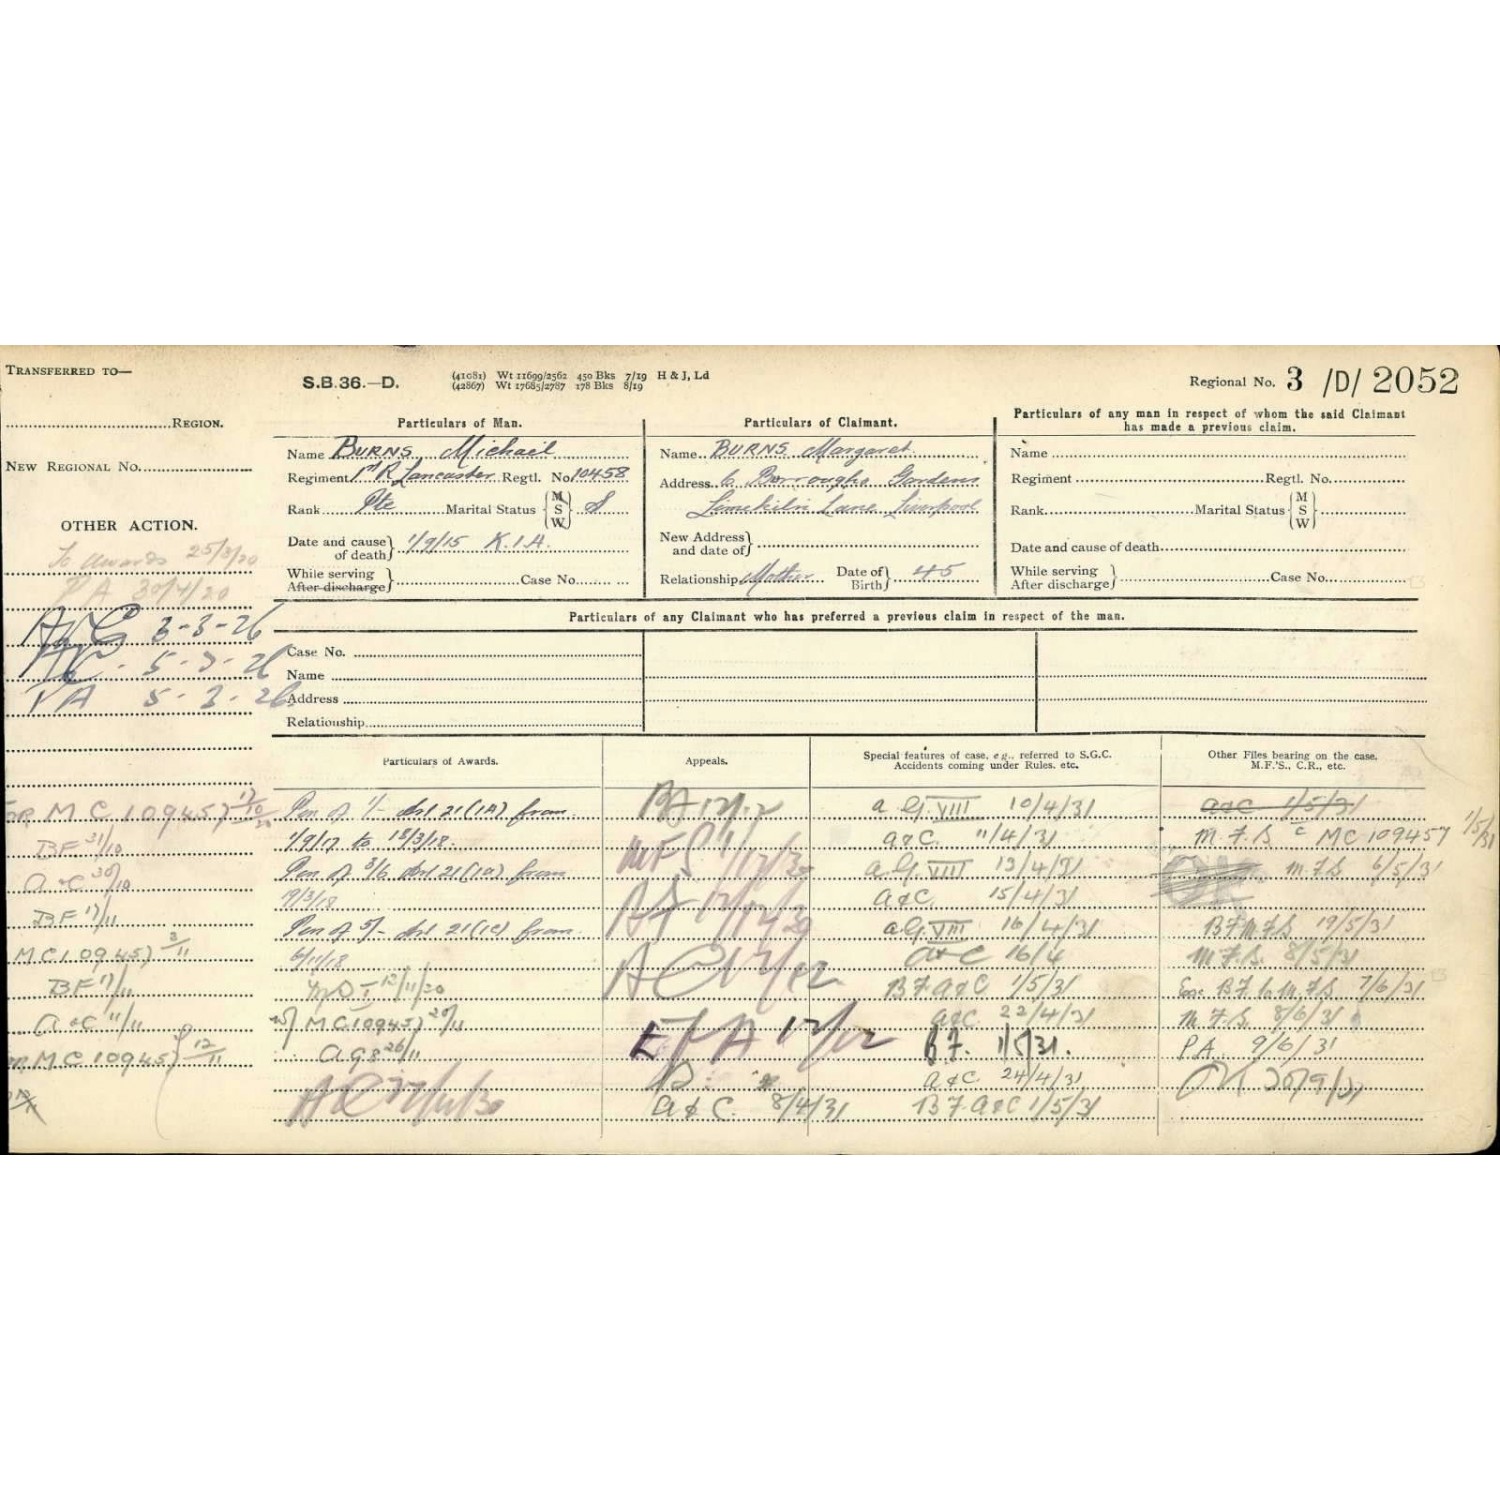 TRANSFERRED TO—
REGION.
NEW REGIONAL No.
OTHER ACTION.
To Awards 25/3/20
PA 30/4/20
3-3-26
5-3-26
PA 5-3-26
MC 109457 17/10
BF 31/10
a&c 30/10
BF 17/11
MC109457 3/11
BF 17/11
a&c 11/11
MC109457 12/11
S.B.36.—D.
(41081) Wt 11699/2562 450 Bks 7/19 H & J, Ld
(42867) Wt 17685/2787 178 Bks 8/19
Regional No. 3 /D/ 2052
Particulars of Man.
Name BURNS Michael
Regiment 1st R Lancaster Regtl. No 10458
Rank Pte Marital Status {M S W} S
Date and cause of death} 1/9/15 K.I.A.
While serving
After discharge} Case No.
Particulars of Claimant.
Name BURNS Margaret
Address 6 Borroughs Gardens
Limekiln Lane Liverpool
New Address and date of}
Relationship Mother Date of Birth} 45
Particulars of any man in respect of whom the said Claimant
has made a previous claim.
Name
Regiment Regtl. No.
Rank Marital Status {M S W}
Date and cause of death
While serving
After discharge} Case No.
Particulars of any Claimant who has preferred a previous claim in respect of the man.
Case No.
Name
Address
Relationship
Particulars of Awards.
Pen of 1/- Art 21(1A) from
1/9/17 to 18/3/18.
Pen of 3/6 Art 21(1a) from
19/3/18
Pen of 5/- Art 21(1c) from
6/11/18
12/11/20
MC109457 20/11
26/11
Appeals.
BA 12/12
MFS
AC 12/12
PA 12/12
a & C. 8/4/31
Special features of case, e.g., referred to S.G.C.
Accidents coming under Rules. etc.
a.G. VIII 10/4/31
a&C. 11/4/31
a.G. VIII 13/4/31
a&C 15/4/31
a.G. VIII 16/4/31
a&C 16/4
BF a&C 1/5/31
a&C. 22/4/31
BF. 1/5/31.
a&C. 24/4/31
BF a&C 1/5/31
Other Files bearing on the case.
M.F.'S., C.R., etc.
a&C 1/5/31
M.F.S. c MC 109457 1/5/31
M.F.S 6/5/31
BF MFS 19/5/31
M.F.S. 8/5/31
BF to M.F.S 7/6/31
M.F.S. 8/6/31
PA 9/6/31